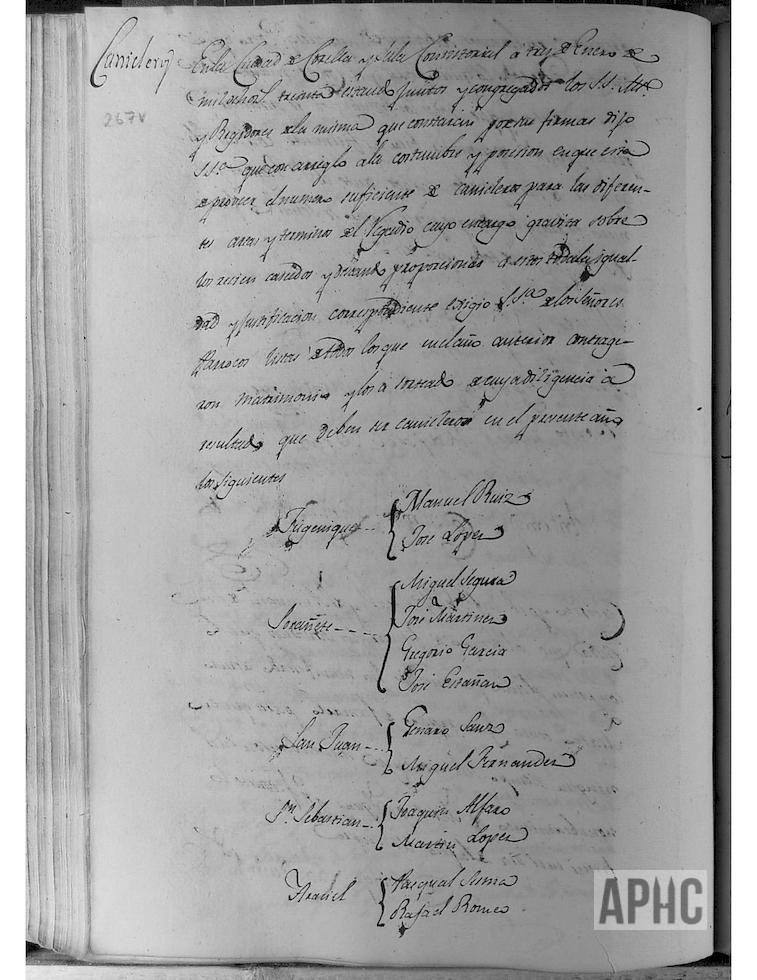 Canieleros
267v
En la Ciudad de Corella y Sala Consistorial a tres de Enero de
mil ochos. treinta estando juntos y congregados los SS. Alc.e
y Regidores de la misma que constarán por sus firmas dijo
SSa. que con arreglo a la costumbre y posesion en que está
de proveer el numero suficiente de canieleros para las diferen-
tes y terminos del Regadio cuyo encargo gravita sobre
los recien casados y deseando proporcionar a estos toda la igual-
dad y justificacion correspondiente exigio SSa. de los Señores
Parrocos listas de todos los que en el año anterior contrage-
ron matrimonio y los a sorteado de cuya diligencia a
resultado que deben ser canieleros en el presente año
los siguientes
Manuel Ruiz
José Lopez
Miguel Segura
José Martinez
Gregorio Garcia
José Escañan
Genaro Sanz
San Juan
Miguel Fernandez
Sn. Sebastian
Joaquin Alfaro
Martin Lopez
Araciel
Pasqual Sesma
Rafael Romeo
APHC